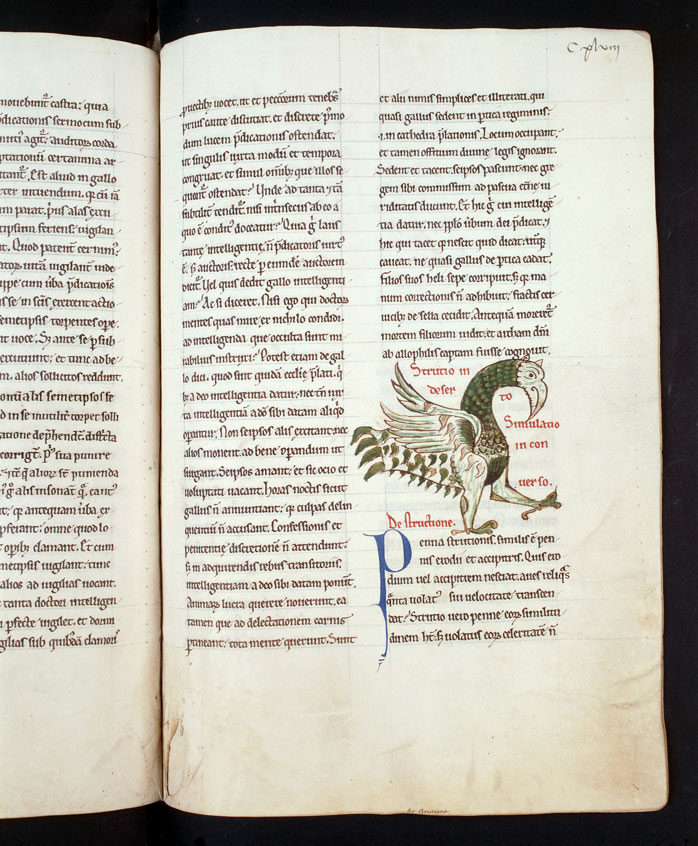 C plviij
mouebunt̃ castra: quia
p̃dicationis sermocum sub
agit. auditoꝝ corda
certamina ar
Est aliud in gallo
intuendum. qͥ cũ iã
parat. pͥus alas excu
semetipsum feriens. uigilan
Quod patent cernim̃.
uigilant inde
cum ũba p̃dicationis
se in scĩs exercent actio
semetipsis torpentes ope
uoce. Sꝫ ante se p̃ sub
excutiunt. et tunc ad be
alios sollicitos reddunt.
semetipsos fe
in se inutilit̃ torpet solli
corrigt̃. pͥ sua punire
aliorꝫ sͭ punienda
alios insonant qͥ cantꝰ
qꝫ antequam ũba ex
proferant: omne quod lo
opibꝫ clamant. Et cum
semetipsis uigilant: tunc
alios ad uigilias uocant.
tanta doctori intelligen
perfecte uigilet. et dorm
uigilias sub quibꝰdã clamorꝰ
uocet. ut et peccorum tenebͥs
prius caute discutiat. et discrete pͥmo
dum lucem p̃dicationis ostendat.
ut singulis iuxta modũ et tempora
congruat. et simul om̃ibꝫ que illos se
quunt̃ ostendat? Unde ad tanta. cͣtã
subtilit̃ tendit̃. nisi int̃nsecus ab eo a
quo ẽ conditꝰ doceatur? Quia gͦ laus
tante intelligentie. ñ p̃dicatoris uirtꝰ
ẽ. sꝫ auctoris: recte p eumdẽ auctorem
dicit̃. Uel quis dedit gallo intelligenti
am? Ac si diceret. Nisi ego qui doctoꝝ
mentes quas mire ex nichilo condidi.
ad intelligenda que occulta sunt mi
rabilius instruxi? Potest etiam de gal
lo dici. quod sint quidã ecclie p̃lati. qͥ
bꝫ a deo intelligentia datur. nec tñ iux
ta intelligentiã a deo sibi datam aliqͥd
operantur. Non seipsos alis excitant: nec
alios monent. ad bene operandum ut
surgant. Seipsos amant: et sic ocio et
uoluptati uacant. horas noctis sicut
gallus ñ annuntiant: qꝫ culpas delin
quentiũ ñ accusant. Confessionis et
penitentie discretionẽ ñ attendunt.
sꝫ in adquirendis rebus transitoriis.
intelligentiam a deo sibi datam ponũt.
Animaꝝ lucra querere nolunt. ea
tamen que ad delectationem carnis
ptineant: tota mente querunt. Sunt
et alii nimis simplices et illiterati. qui
quasi gallus sedent in ptica regiminis:
.i. in cathedra p̃lationis. Locum occupant.
et tamen offitium diuine legis ignorant.
Sedent et tacent. seipsos pascunt: nec gre
gem sibi commissum ad pascua et̃ne ui
riditatis ducunt. Et hic gͦ cui intellige
tia datur. nec pplo ũbum dei p̃dicat. et
hic qui tacet qꝫ nescit quid dicat: ut̃qꝫ
caueat. ne quasi gallus de ptica cadat.
Filios suos heli sepe corripuit. sꝫ qꝫ ma
num correctionis ñ adhibuit: fractis cer
uicibꝫ de sella cecidit. Antequã moreret̃
mortem filiorum uidit: et archam dñi
ab allophilis captam fuisse cognouit.
Strutio in
deser to
Similatio
in con
uerso.
De structione.
Penna strutionis. similis ẽ pen
nis erodii et accipitris. Quis ero
dium uel accipitrem nesciat. aues reliqͣs
qͣnta uolatꝰ sui uelocitate transcen
dat? Strutio uero penne eoꝝ similitu
dinem ht̃. sꝫ uolatus eoꝝ celeritatẽ ñ